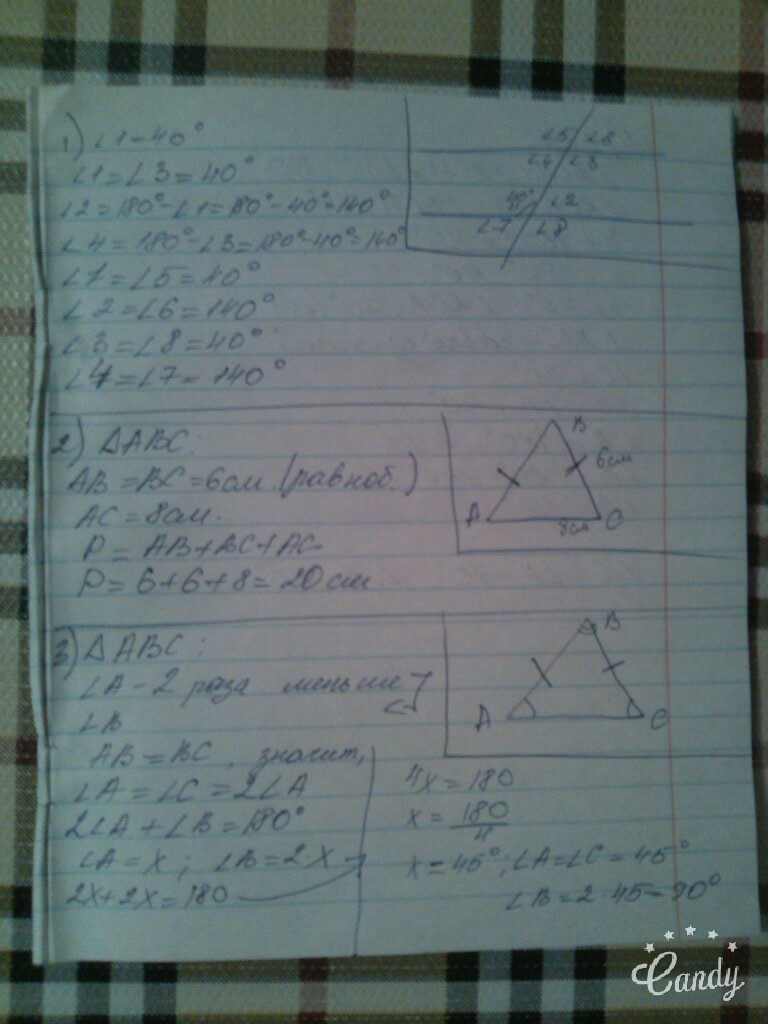 1) ∠1 - 40°
∠1 = ∠3 = 40°
∠2 = 180° - ∠1 = 180° - 40° = 140°
∠4 = 180° - ∠3 = 180° - 40° = 140°
∠1 = ∠5 = 40°
∠2 = ∠6 = 140°
∠3 = ∠8 = 40°
∠4 = ∠7 = 140°
∠5 ∠6
∠4 ∠3
40° ∠2
∠7 ∠8
2) ΔABC:
AB = BC = 6см. (равноб.)
AC = 8см.
P = AB + BC + AC
P = 6 + 6 + 8 = 20 см
B
6см
A
8см
C
3) ΔABC:
∠A - 2 раза меньше
∠B
AB = BC, значит,
∠A = ∠C = 2∠A
2∠A + ∠B = 180°
∠A = x; ∠B = 2·x
2x + 2x = 180
B
A
C
4x = 180
x = 180/4
x = 45°; ∠A = ∠C = 45°
∠B = 2·45 = 90°
Candy